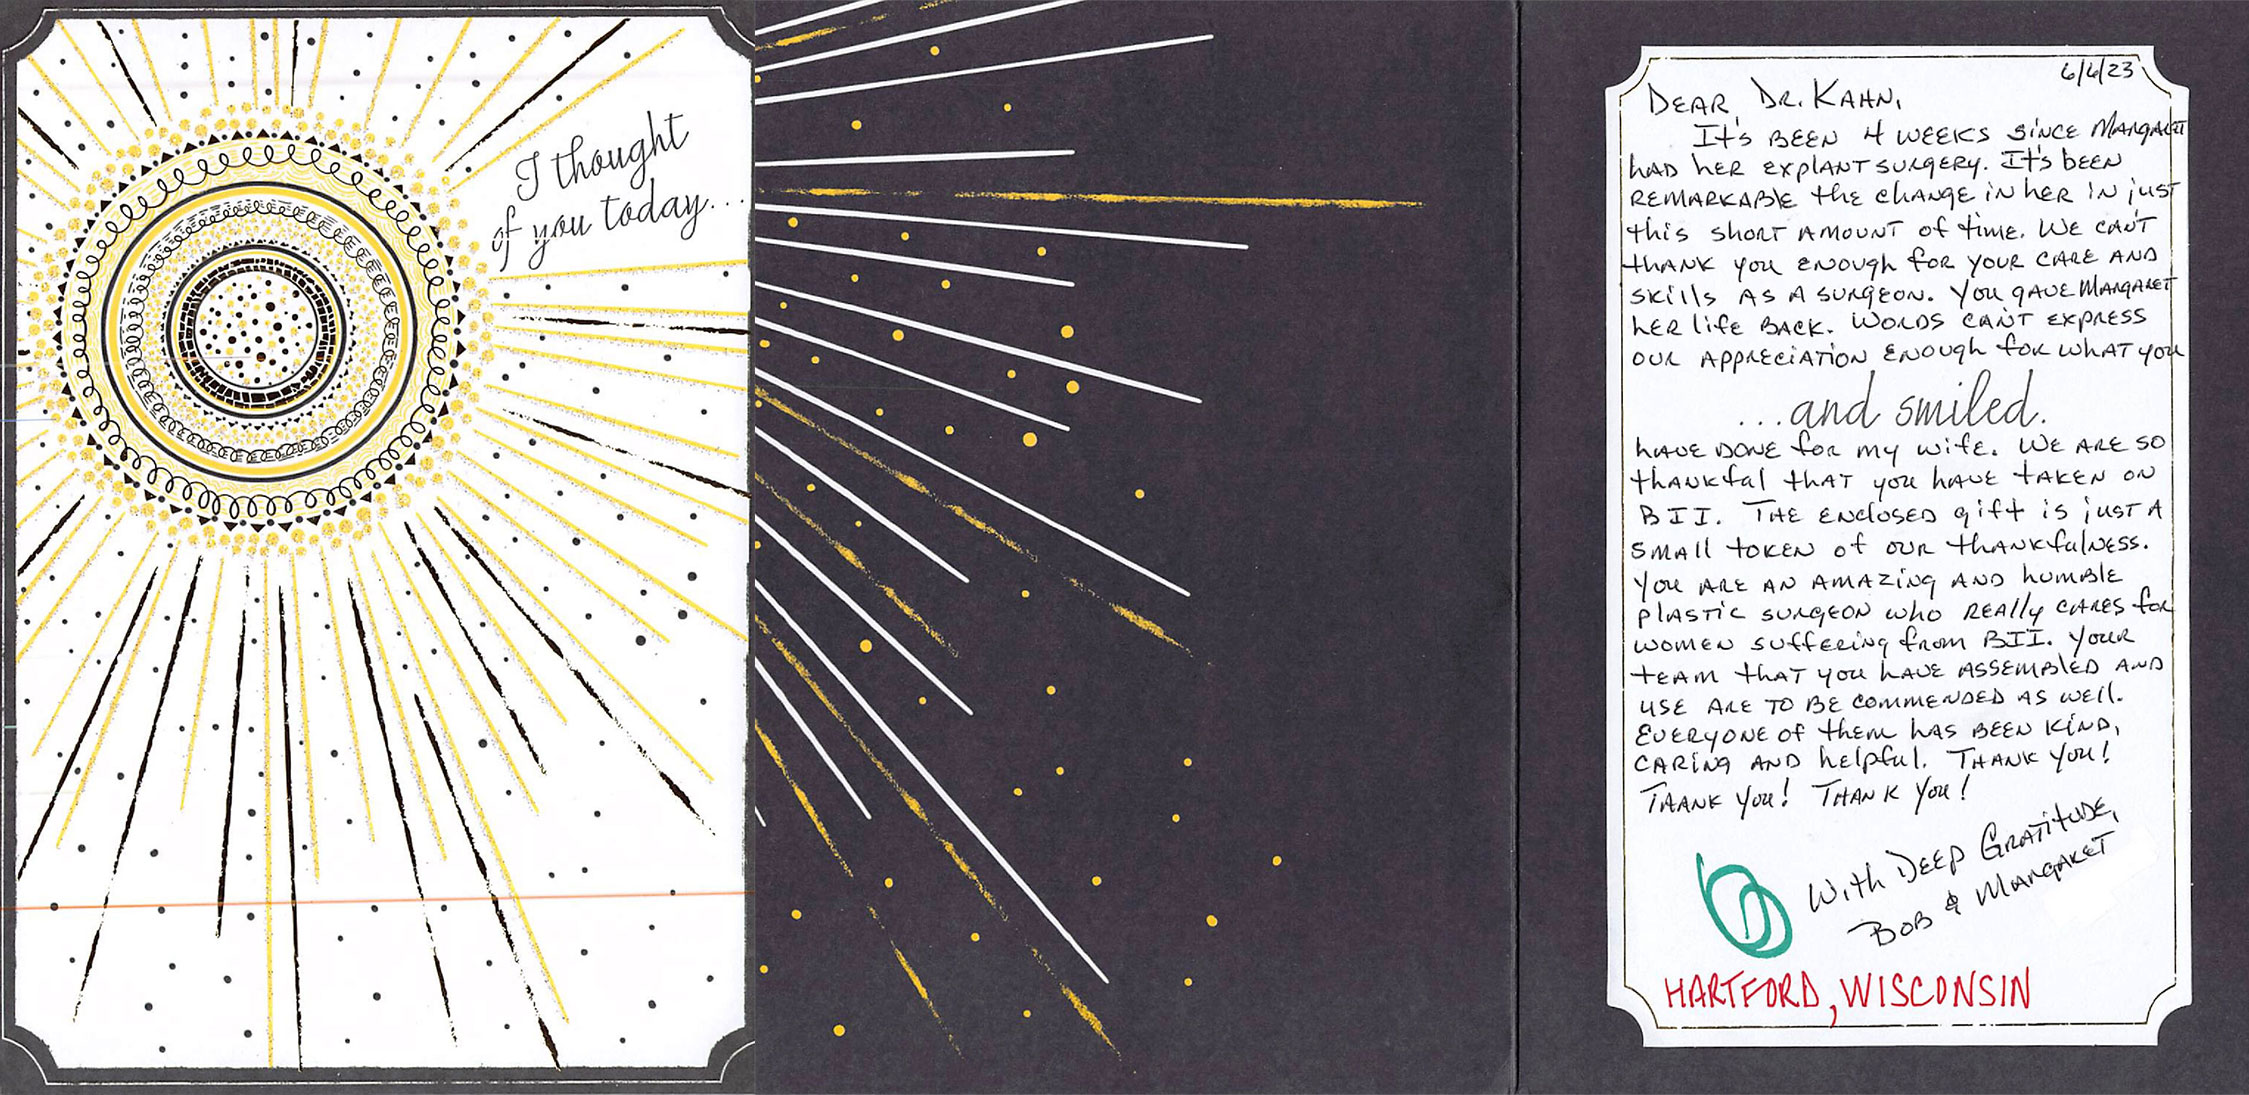 I thought
of you today...
6/6/23
DEAR DR. KAHN,
It's BEEN 4 WEEKS SINCE MARGARET
HAD HER EXPLANT SURGERY. It's BEEN
REMARKABLE the CHANGE IN HER IN JUST
this SHORT AMOUNT of time. WE CAN'T
THANK YOU ENOUGH for YOUR CARE AND
skills AS A SURGEON. YOU GAVE MARGARET
HER life BACK. WORDS CAN'T EXPRESS
OUR APPRECIATION ENOUGH for WHAT YOU
...and smiled.
HAVE DONE for my wife. WE ARE SO
thankful that you HAVE TAKEN ON
BII. THE ENCLOSED gift is JUST A
SMALL TOKEN of OUR thankfulness.
YOU ARE AN AMAZING AND HUMBLE
PLASTIC SURGEON WHO REALLY CARES for
WOMEN SUFFERING from BII. YOUR
TEAM that YOU HAVE ASSEMBLED AND
USE ARE TO BE COMMENDED AS WELL.
EVERYONE of them HAS BEEN KIND,
CARING AND helpful. THANK YOU!
THANK YOU! THANK YOU!
With DEEP GRATITUDE,
BOB & MARGARET
HARTFORD, WISCONSIN